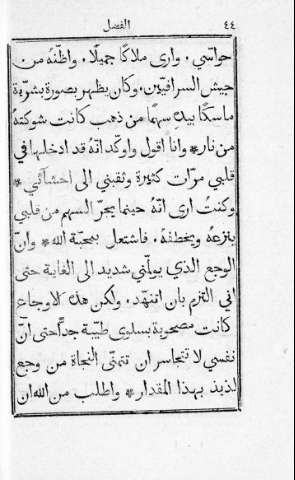 ٤٤ الفصل
حواسي. وارى ملاكًا جميلًا. واظنّهُ من
جيش السرافيّين. وكان يظهر بصورة بشريّة
ماسكًا بيده سهمًا من ذهب كانت شوكتهُ
من نار* وانا اقول واوكّد انّهُ قد ادخلها في
قلبي مرّات كثيرة وثقبني الى احشائي*
وكنتُ ارى انّهُ حينما يجرّ السهم من قلبي
ينزعهُ ويخطفهُ. فاشتعل بمحبّة الله* وانّ
الوجع الذي يولّمني شديد الى الغاية حتى
انّي التزم بان اتنهّد. ولكن هذه الاوجاع
كانت مصحوبة بسلوى طيّبة جدًّا حتى انّ
نفسي لا تتجاسر ان تتمنّى النجاة من وجع
لذيذ بهذا المقدار* واطلب من الله ان